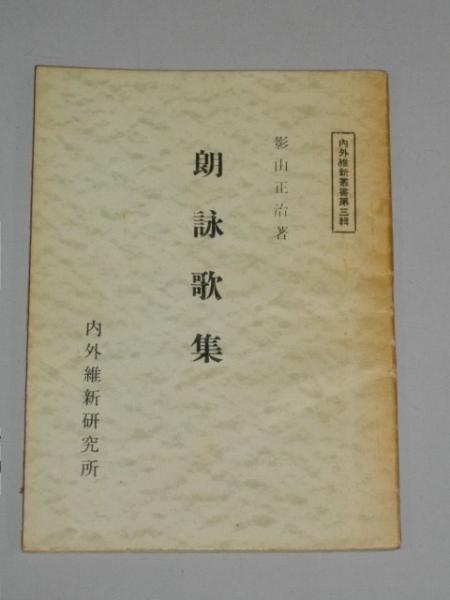 内外維新叢書第三輯
影山正治著
朗詠歌集
内外維新研究所